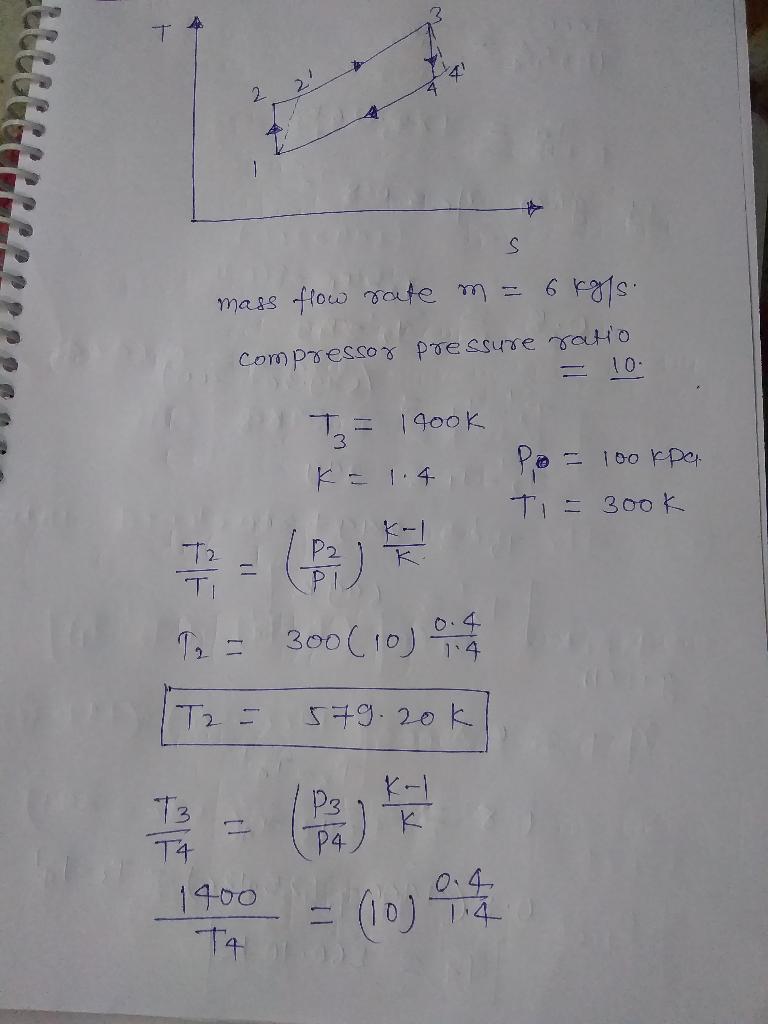 T
3
2 2' 4'
4
1
S
mass flow rate m = 6 kg/s.
compressor pressure ratio
= 10.
T3 = 1400K
K = 1.4 P1 = 100 KPa
T1 = 300K
T2/T1 = (P2/P1)^(K-1/K)
T2 = 300(10)^(0.4/1.4)
T2 = 579.20 K
T3/T4 = (P3/P4)^(K-1/K)
1400/T4 = (10)^(0.4/1.4)